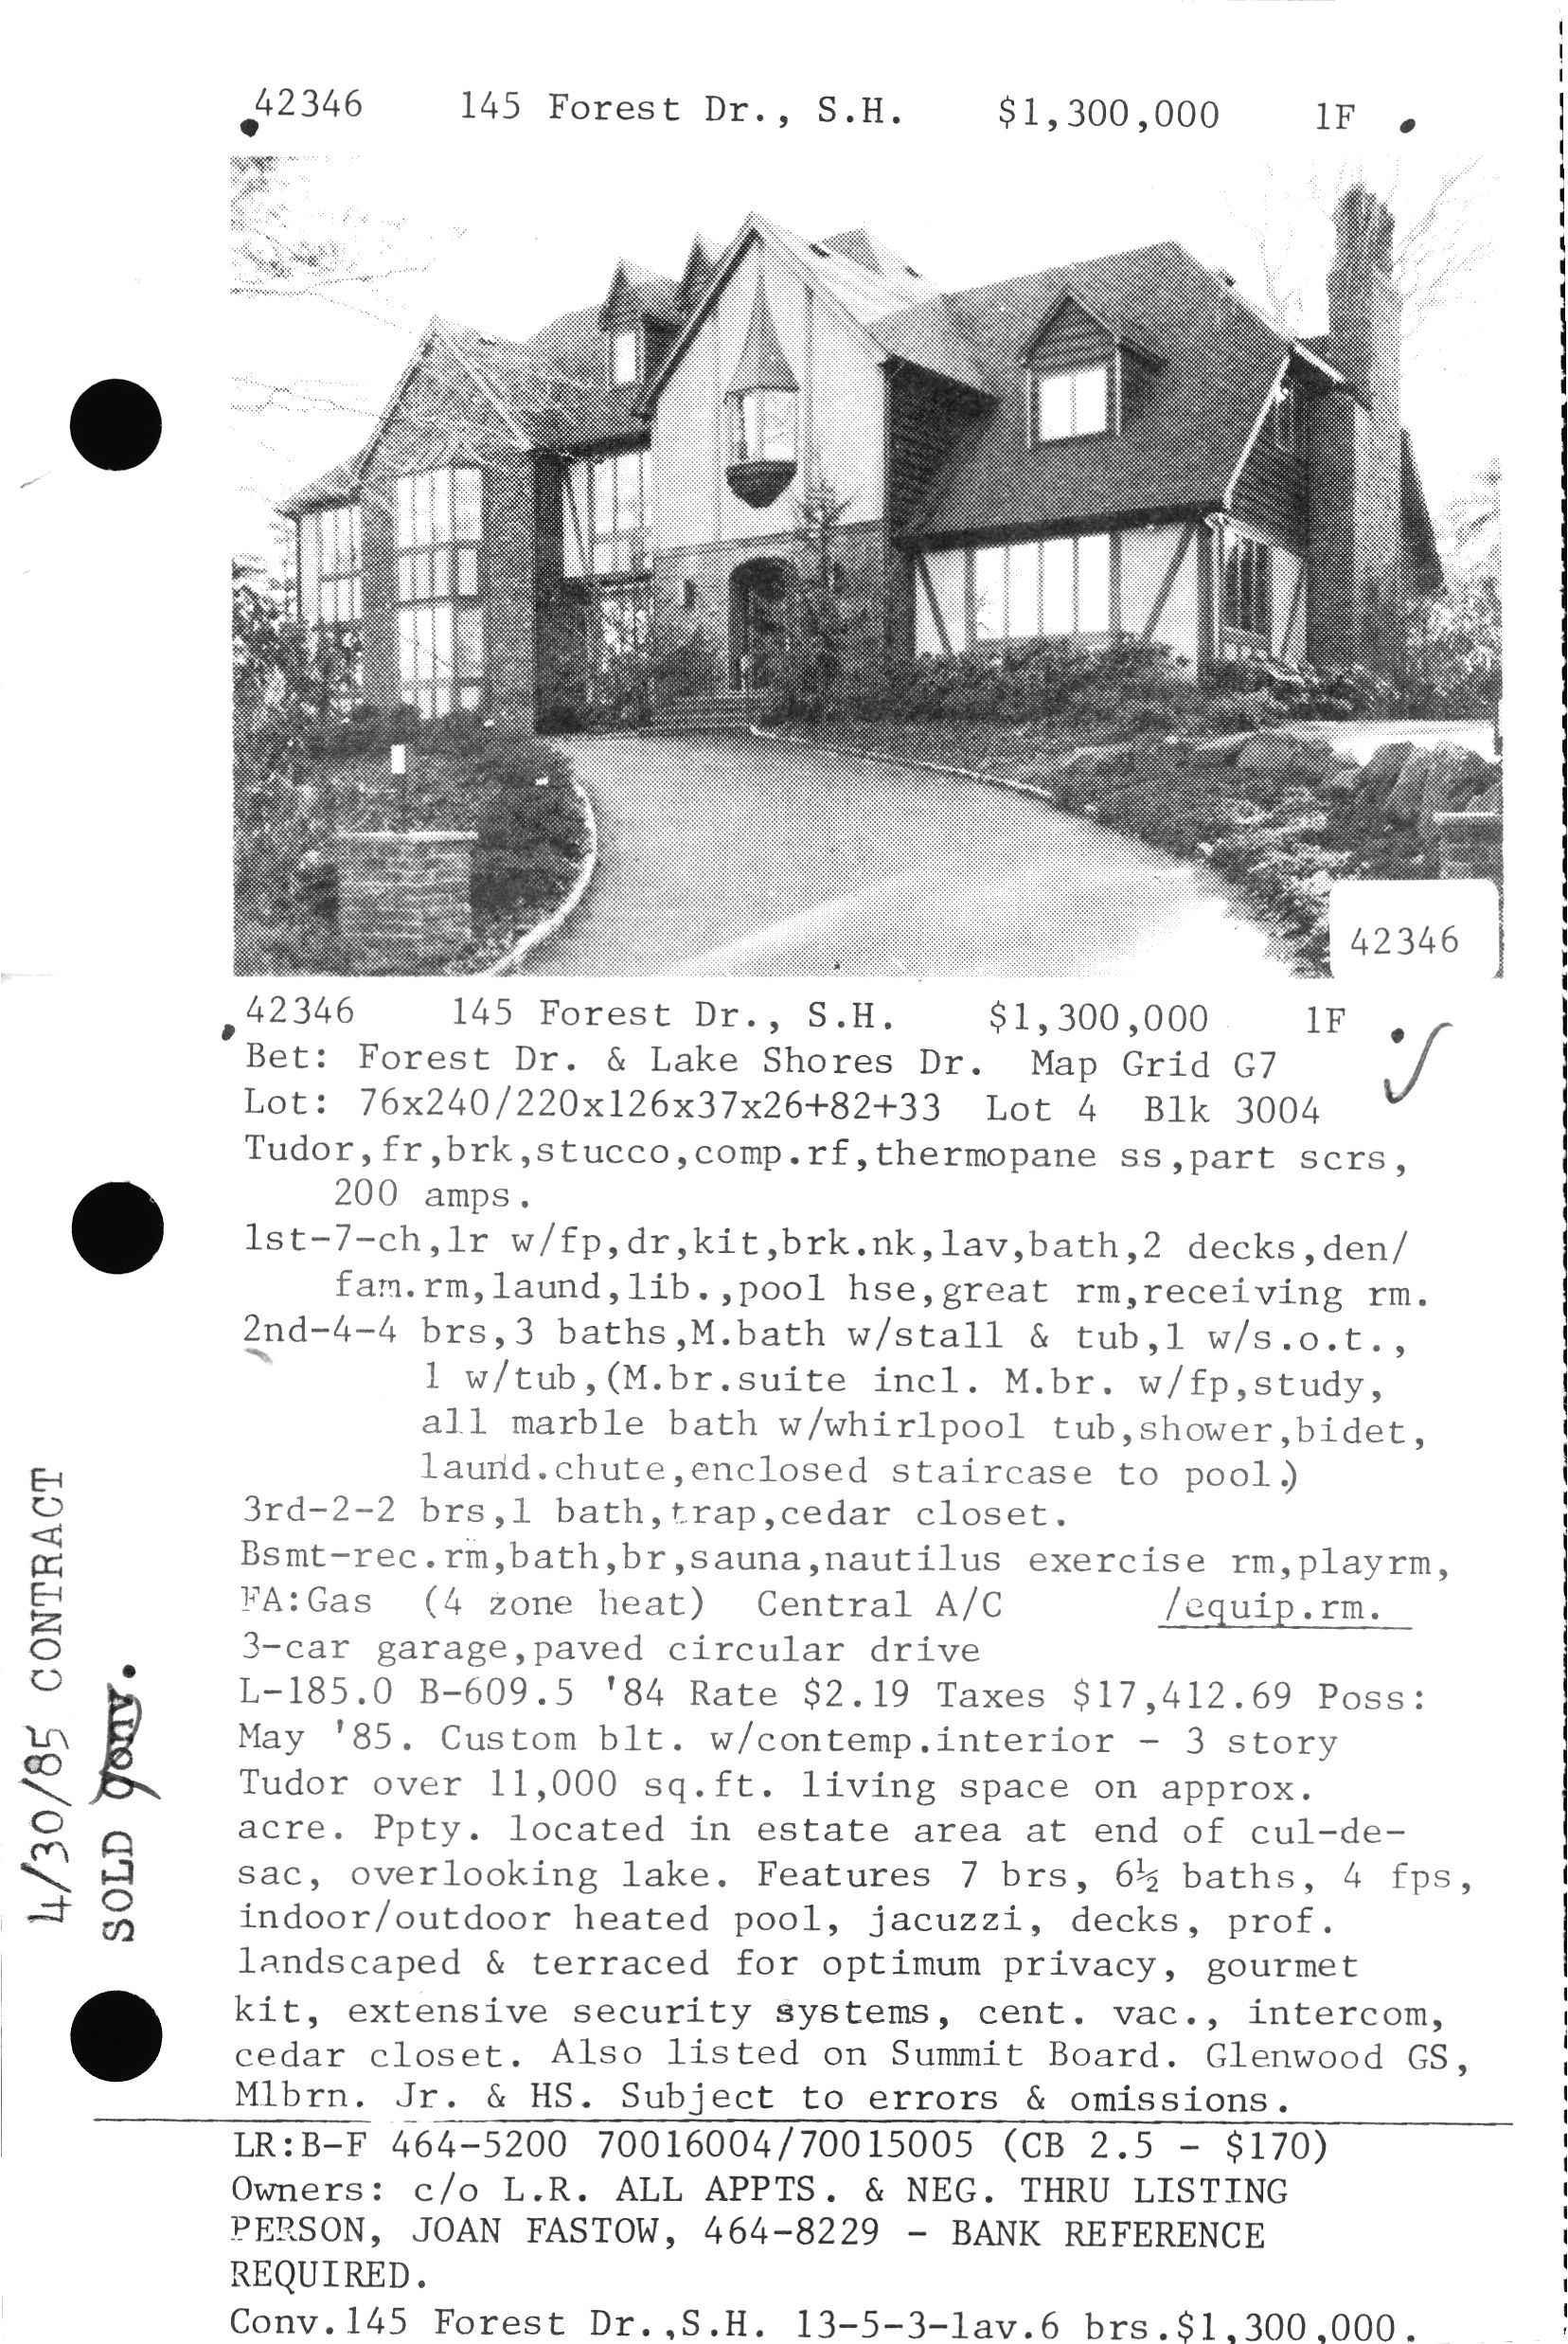 42346 145 Forest Dr., S.H. $1,300,000 1F
42346
42346 145 Forest Dr., S.H. $1,300,000 1F
Bet: Forest Dr. & Lake Shores Dr. Map Grid G7
Lot: 76x240/220x126x37x26+82+33 Lot 4 Blk 3004
Tudor,fr,brk,stucco,comp.rf,thermopane ss,part scrs,
200 amps.
1st-7-ch,lr w/fp,dr,kit,brk.nk,lav,bath,2 decks,den/
fam.rm,laund,lib.,pool hse,great rm,receiving rm.
2nd-4-4 brs,3 baths,M.bath w/stall & tub,1 w/s.o.t.,
1 w/tub,(M.br.suite incl. M.br. w/fp,study,
all marble bath w/whirlpool tub,shower,bidet,
laund.chute,enclosed staircase to pool.)
3rd-2-2 brs,1 bath,trap,cedar closet.
Bsmt-rec.rm,bath,br,sauna,nautilus exercise rm,playrm,
FA:Gas (4 zone heat) Central A/C /equip.rm.
3-car garage,paved circular drive
L-185.0 B-609.5 '84 Rate $2.19 Taxes $17,412.69 Poss:
May '85. Custom blt. w/contemp.interior - 3 story
Tudor over 11,000 sq.ft. living space on approx.
acre. Ppty. located in estate area at end of cul-de-
sac, overlooking lake. Features 7 brs, 6½ baths, 4 fps,
indoor/outdoor heated pool, jacuzzi, decks, prof.
landscaped & terraced for optimum privacy, gourmet
kit, extensive security systems, cent. vac., intercom,
cedar closet. Also listed on Summit Board. Glenwood GS,
Mlbrn. Jr. & HS. Subject to errors & omissions.
LR:B-F 464-5200 70016004/70015005 (CB 2.5 - $170)
Owners: c/o L.R. ALL APPTS. & NEG. THRU LISTING
PERSON, JOAN FASTOW, 464-8229 - BANK REFERENCE
REQUIRED.
Conv.145 Forest Dr.,S.H. 13-5-3-lav.6 brs.$1,300,000.
4/30/85 CONTRACT
SOLD